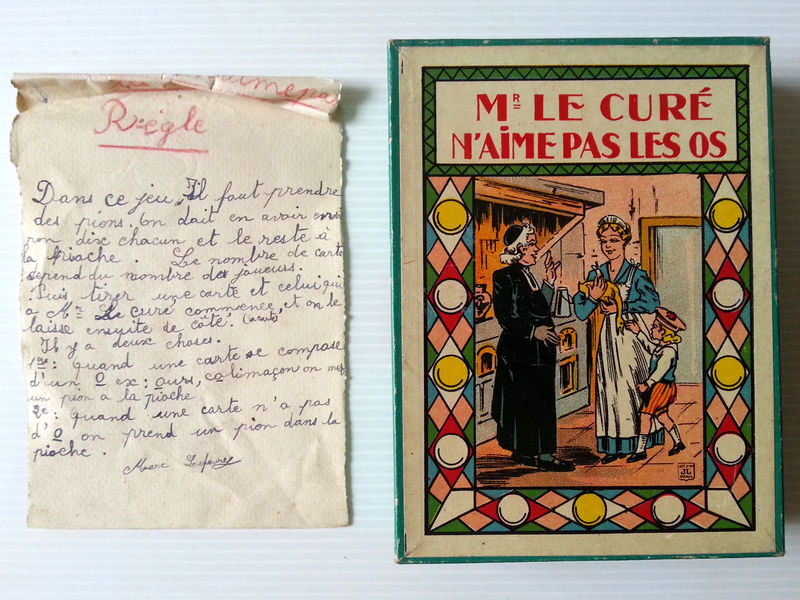 aime pas
Règle
Dans ce jeu, Il faut prendre
des pions. On dait en avoir envi
ron dix chacun et le reste à
la pioche. Le nombre de carte
dépend du nombre des joueurs.
Puis tirer une carte et celui qui
a Mr Le curé commence, et on le
laisse ensuite de côté. (la carte)
Il y a deux choses.
1re: quand une carte se compose
d'un O ex: ours, colimaçon on met
un pion a la pioche
2e: quand une carte n'a pas
d'O on prend un pion dans la
pioche.
Marc
MR LE CURÉ
N'AIME PAS LES OS
JL
PARIS